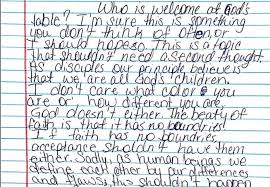 Who is welcome at God's
table? I'm sure this is something
you don't think of often, or
I should hope so. This is a topic
that shouldn't need a second thought.
As disciples our principle believe is
that we are all God's children.
I don't care what color you
are or, how different you are,
God doesn't either. The beauty of
faith is that it has no boundries!
If faith has no boundries
acceptance shouldn't have them
either. Sadly, as human beings we
define each other by our differences
and flaws, this shouldn't happen